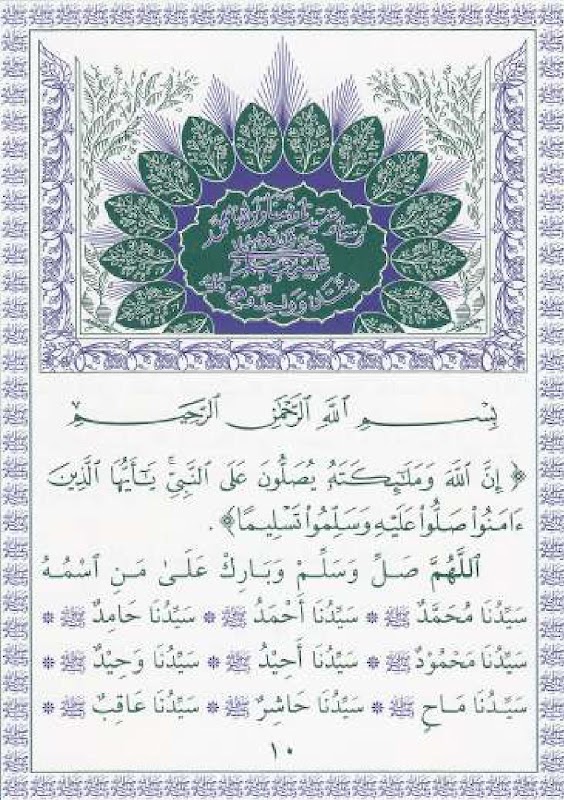 بِسْمِ ٱللَّهِ ٱلرَّحْمَٰنِ ٱلرَّحِيمِ
﴿ إِنَّ ٱللَّهَ وَمَلَٰٓئِكَتَهُۥ يُصَلُّونَ عَلَى ٱلنَّبِيِّۚ يَٰٓأَيُّهَا ٱلَّذِينَ
ءَامَنُوا۟ صَلُّوا۟ عَلَيْهِ وَسَلِّمُوا۟ تَسْلِيمًا﴾ .
اَللَّهُمَّ صَلِّ وَسَلِّمْ وَبَارِكْ عَلَىٰ مَنِ ٱسْمُهُ
سَيِّدُنَا مُحَمَّدٌ ﷺ * سَيِّدُنَا أَحْمَدُ ﷺ * سَيِّدُنَا حَامِدٌ ﷺ *
سَيِّدُنَا مَحْمُودٌ ﷺ * سَيِّدُنَا أَحِيْدُ ﷺ * سَيِّدُنَا وَحِيْدٌ ﷺ *
سَيِّدُنَا مَاحٍ ﷺ * سَيِّدُنَا حَاشِرٌ ﷺ * سَيِّدُنَا عَاقِبٌ ﷺ *
١٠